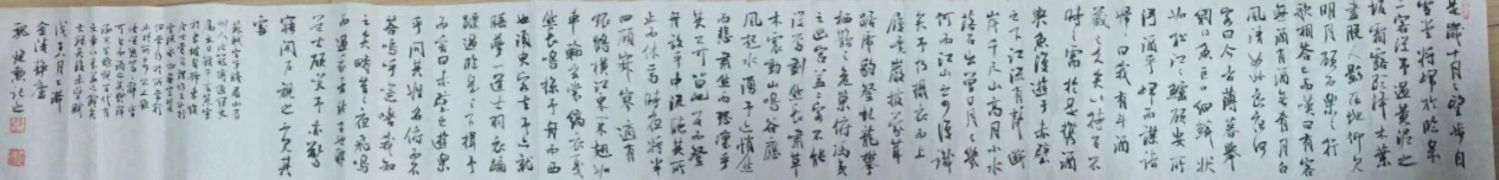 是歲十月之望步自
雪堂將歸於臨皋
二客從予過黃泥之
坂霜露既降木葉
盡脫人影在地仰見
明月顧而樂之行
歌相答已而嘆曰有客
無酒有酒無肴月白
風清如此良夜何
客曰今者薄暮舉
網得魚巨口細鱗狀
如松江之鱸顧安所
得酒乎歸而謀諸
婦曰我有斗酒
藏之久矣以待子不
時之需於是攜酒
與魚復遊于赤壁
之下江流有聲斷
岸千尺山高月小水
落石出曾日月之幾
何而江山不可復識
矣予乃攝衣而上
履巉巖披蒙茸
踞虎豹登虬龍攀
栖鶻之危巢俯馮夷
之幽宮蓋二客不能
從焉劃然長嘯草
木震動山鳴谷應
風起水湧予亦悄然
而悲肅然而恐凜乎
其不可留也反而登
舟放乎中流聽其所
止而休焉時夜將半
四顧寂寥適有
孤鶴橫江東來翅如
車輪玄裳縞衣戛
然長鳴掠予舟而西
也須臾客去予亦就
睡夢一道士羽衣蹁
躚過臨皋之下揖予
而言曰赤壁之遊樂
乎問其姓名俯而不
答嗚呼噫嘻我知
之矣疇昔之夜飛鳴
而過我者非子也耶
道士顧笑予亦驚
寤開戶視之不見其
處